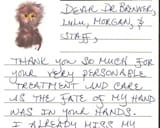 DEAR DR BANNER,
LULU, MORGAN, &
STAFF,
THANK YOU SO MUCH FOR
YOUR VERY PERSONABLE
TREATMENT AND CARE
AS THE FATE OF MY HAND
WAS IN YOUR HANDS.
I ALREADY MISS MY